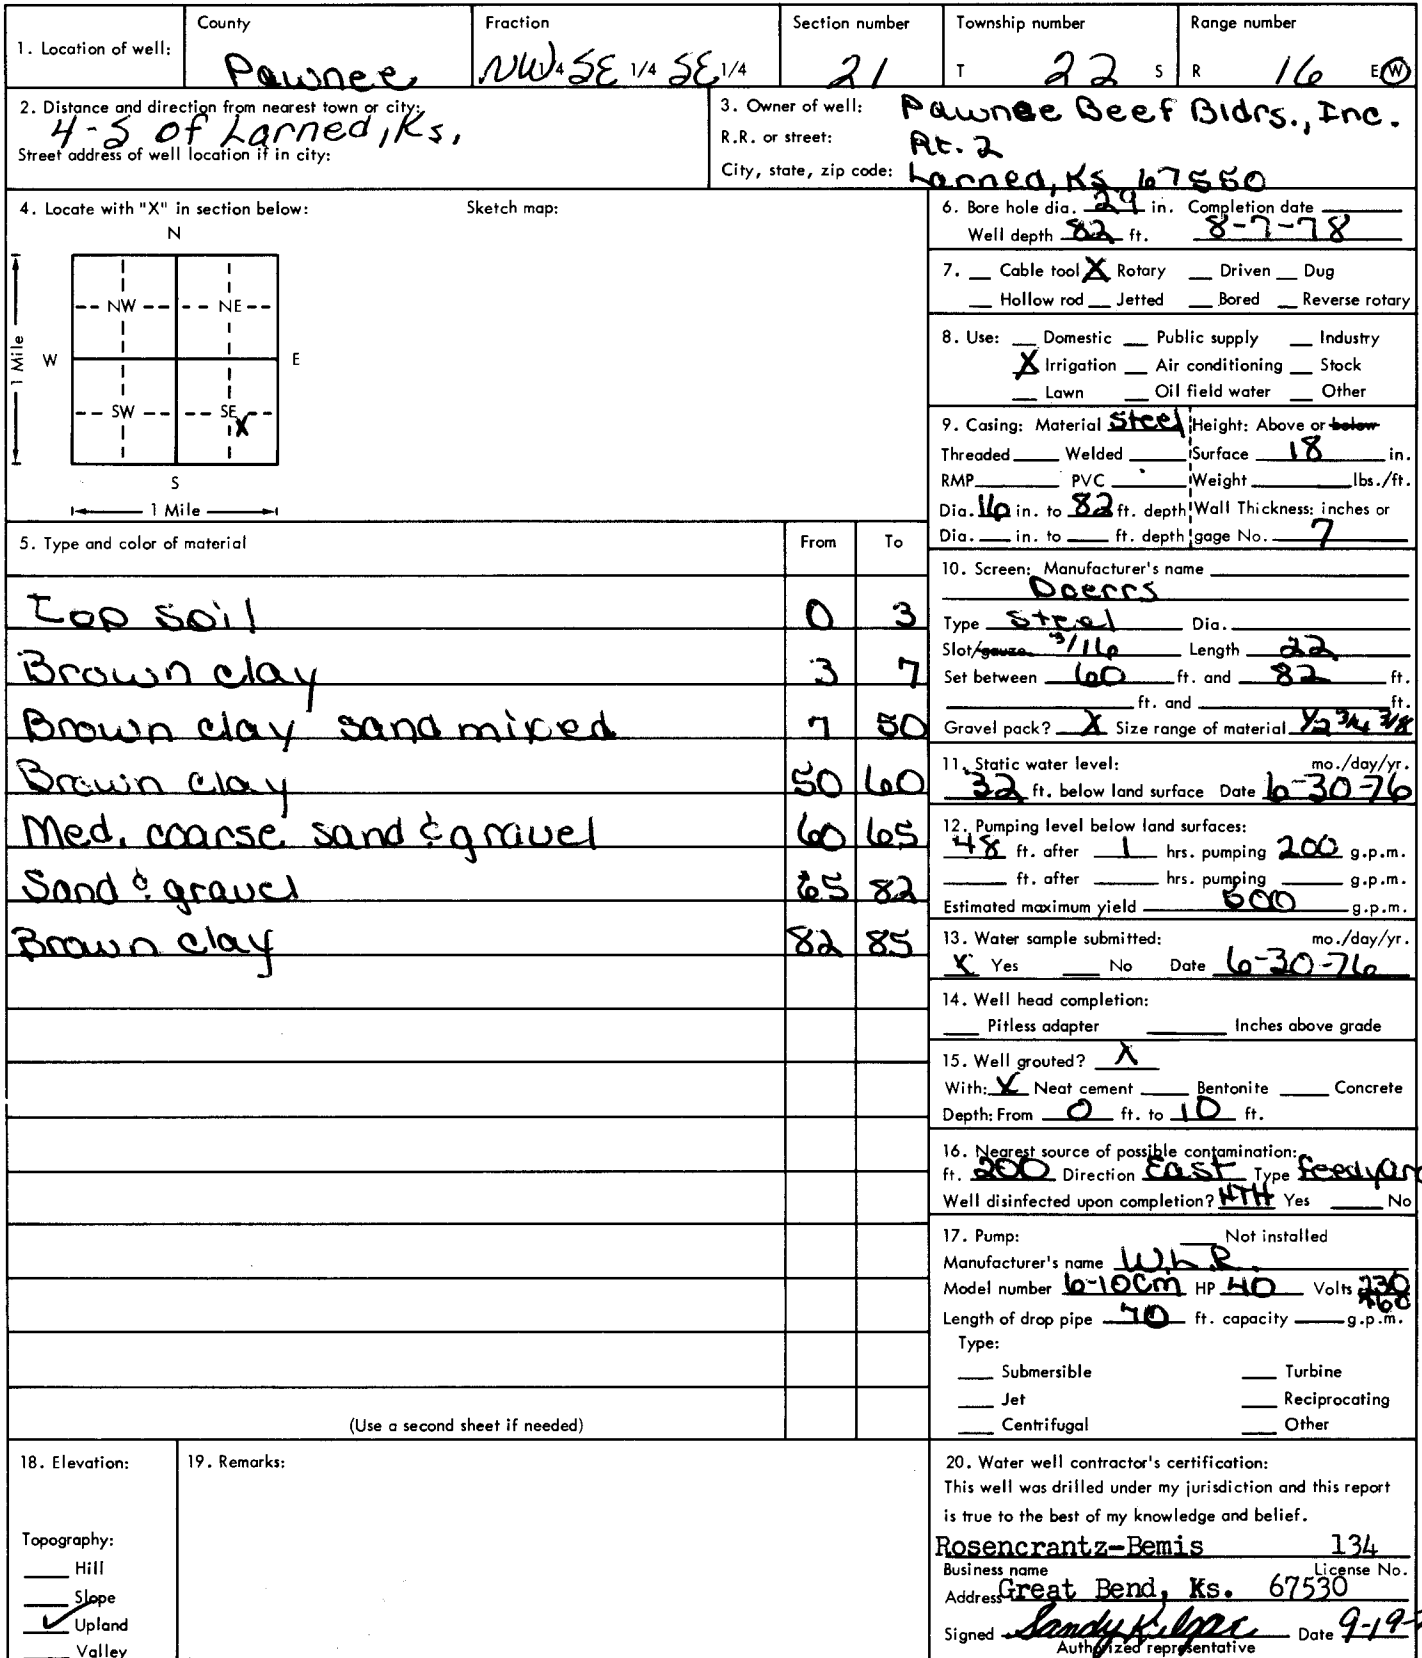 1. Location of well:
County
Pawnee
Fraction
NW 4 SE 1/4 SE 1/4
Section number
21
Township number
T 22 S
Range number
R 16 E W
2. Distance and direction from nearest town or city:
4-S of Larned, Ks.
Street address of well location if in city:
3. Owner of well: Pawnee Beef Bldrs., Inc.
R.R. or street: Rt. 2
City, state, zip code: Larned, Ks 67550
4. Locate with "X" in section below: Sketch map:
N
NW NE
W E
1 Mile
SW SE
X
S
1 Mile
6. Bore hole dia. 29 in. Completion date
Well depth 82 ft. 8-7-78
7. Cable tool X Rotary Driven Dug
Hollow rod Jetted Bored Reverse rotary
8. Use: Domestic Public supply Industry
X Irrigation Air conditioning Stock
Lawn Oil field water Other
9. Casing: Material Steel Height: Above or below
Threaded Welded Surface 18 in.
RMP PVC Weight lbs./ft.
Dia. 16 in. to 82 ft. depth Wall Thickness: inches or
Dia. in. to ft. depth gage No. 7
5. Type and color of material From To
top soil 0 3
Brown clay 3 7
Brown clay sand mixed 7 50
Brown clay 50 60
Med. coarse sand & gravel 60 65
Sand & gravel 65 82
Brown clay 82 85
(Use a second sheet if needed)
10. Screen: Manufacturer's name
Doerrs
Type Steel Dia.
Slot/gauze 3/16 Length 22
Set between 60 ft. and 82 ft.
ft. and ft.
Gravel pack? X Size range of material 1/2 3/4 3/8
11. Static water level: mo./day/yr.
32 ft. below land surface Date 6-30-76
12. Pumping level below land surfaces:
48 ft. after 1 hrs. pumping 200 g.p.m.
ft. after hrs. pumping g.p.m.
Estimated maximum yield 500 g.p.m.
13. Water sample submitted: mo./day/yr.
X Yes No Date 6-30-76
14. Well head completion:
Pitless adapter Inches above grade
15. Well grouted? X
With: X Neat cement Bentonite Concrete
Depth: From 0 ft. to 10 ft.
16. Nearest source of possible contamination:
ft. 200 Direction East Type feedyard
Well disinfected upon completion? HTH Yes No
17. Pump: Not installed
Manufacturer's name W.L.R.
Model number 6-10CM HP 40 Volts 230
460
Length of drop pipe 70 ft. capacity g.p.m.
Type:
Submersible Turbine
Jet Reciprocating
Centrifugal Other
18. Elevation:
Topography:
Hill
Slope
✓ Upland
Valley
19. Remarks:
20. Water well contractor's certification:
This well was drilled under my jurisdiction and this report
is true to the best of my knowledge and belief.
Rosencrantz-Bemis 134
Business name License No.
Address Great Bend, Ks. 67530
Signed Sandy Date 9-19-
Authorized representative